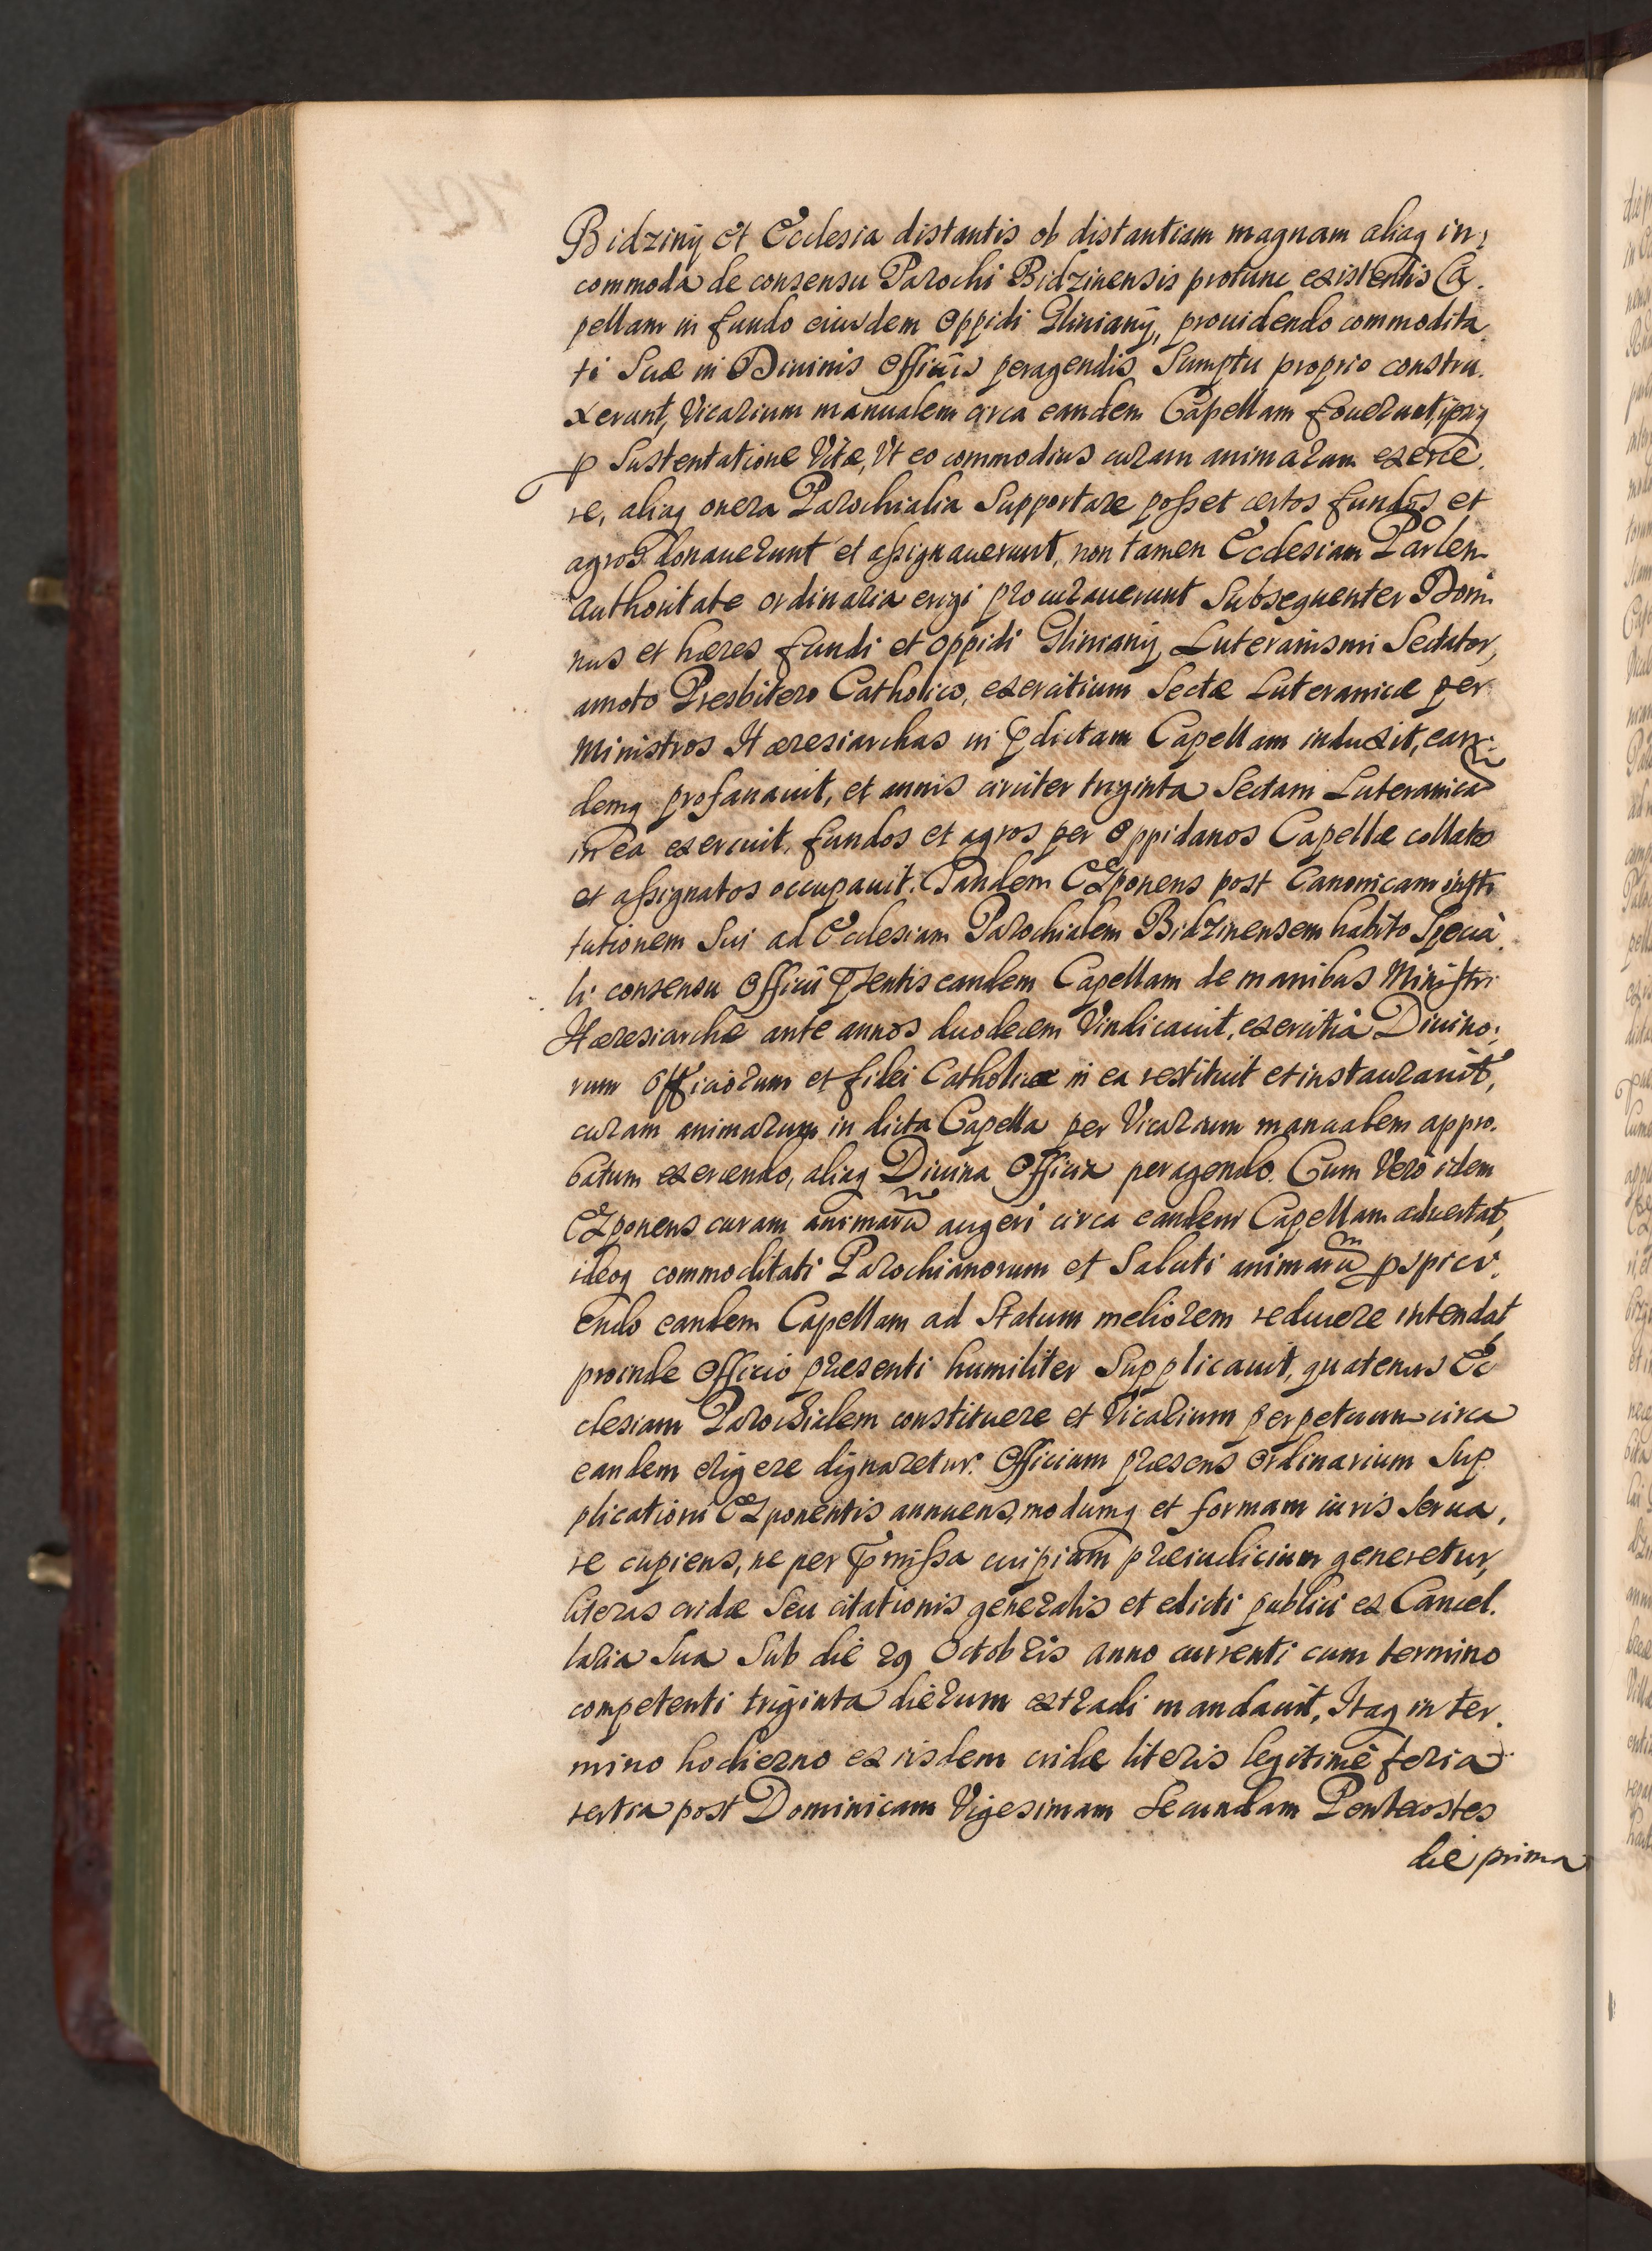 Bidziny et Ecclesia distantis ob distantiam magnam aliaq in-
commoda de consensu Parochi Bidzinensis protunc existentis Ca-
pellam in fundo eiusdem Oppidi Gliniany, prouidendo commodita
ti Suæ in Diuinis Officijs peragendis Sumptu proprio constru-
xerunt, Vicarium manualem circa eandem Capellam fouerunt,
p Sustentatione Vitæ, Vt eo commodius curam animarum exerce
re, aliaq onera Parochialia Supportare posset certos fundos et
agros donauerunt et assignauerunt, non tamen Ecclesiam Parlem
authoritate ordinaria erigi procurauerunt Subsequenter Domi
nus et hæres fundi et oppidi Gliniany, Luteranismi Sectator,
amoto Presbitero Catholico, exercitium Sectæ Luteranicæ per
Ministros Hæresiarchas in pdictam Capellam induxit, ean-
demq profanauit, et annis circiter triginta Sectam Luteranicã
in ea exercuit, fundos et agros per Oppidanos Capellæ collatos
et assignatos occupauit. Tandem Exponens post Canonicam insti
tutionem Sui ad Ecclesiam Parochialem Bidzinensem habito Specia
li consensu Officii pSentis eandem Capellam de manibus Ministri
Hæresiarchæ ante annos duodecem Vindicauit, exercitia Diuino-
rum Officiorum et fidei Catholicæ in ea restituit et instaurauit,
curam animarum in dicta Capella per Vicarium manualem appro-
batum exercendo, aliaq Diuina Officia peragendo. Cum Vero idem
Exponens curam animarũ augeri circa eandem Capellam aduertat,
ideoq commoditati Parochianorum et Saluti animarũ pspici-
endo eandem Capellam ad Statum meliorem reducere intendat,
proinde Officio præsenti humiliter Supplicauit, quatenus Ec
clesiam Parochialem constituere et Vicarium perpetuum circa
eandem erigere dignaretur. Officium præsens Ordinarium Sup
plicationi Exponentis annuens, modumq et formam iuris Serua-
re cupiens, ne per pmissa cuipiam præiudicium generetur,
literas cridæ Seu citationis generalis et edicti publici ex Cancel-
laria Sua Sub die 29 Octobris anno currenti cum termino
competenti triginta dierum extradi mandauit, Itaq in ter-
mino hodierno ex iisdem cridæ literis legitime feria
tertia post Dominicam Vigesimam Secundam Pentecostes
die prima